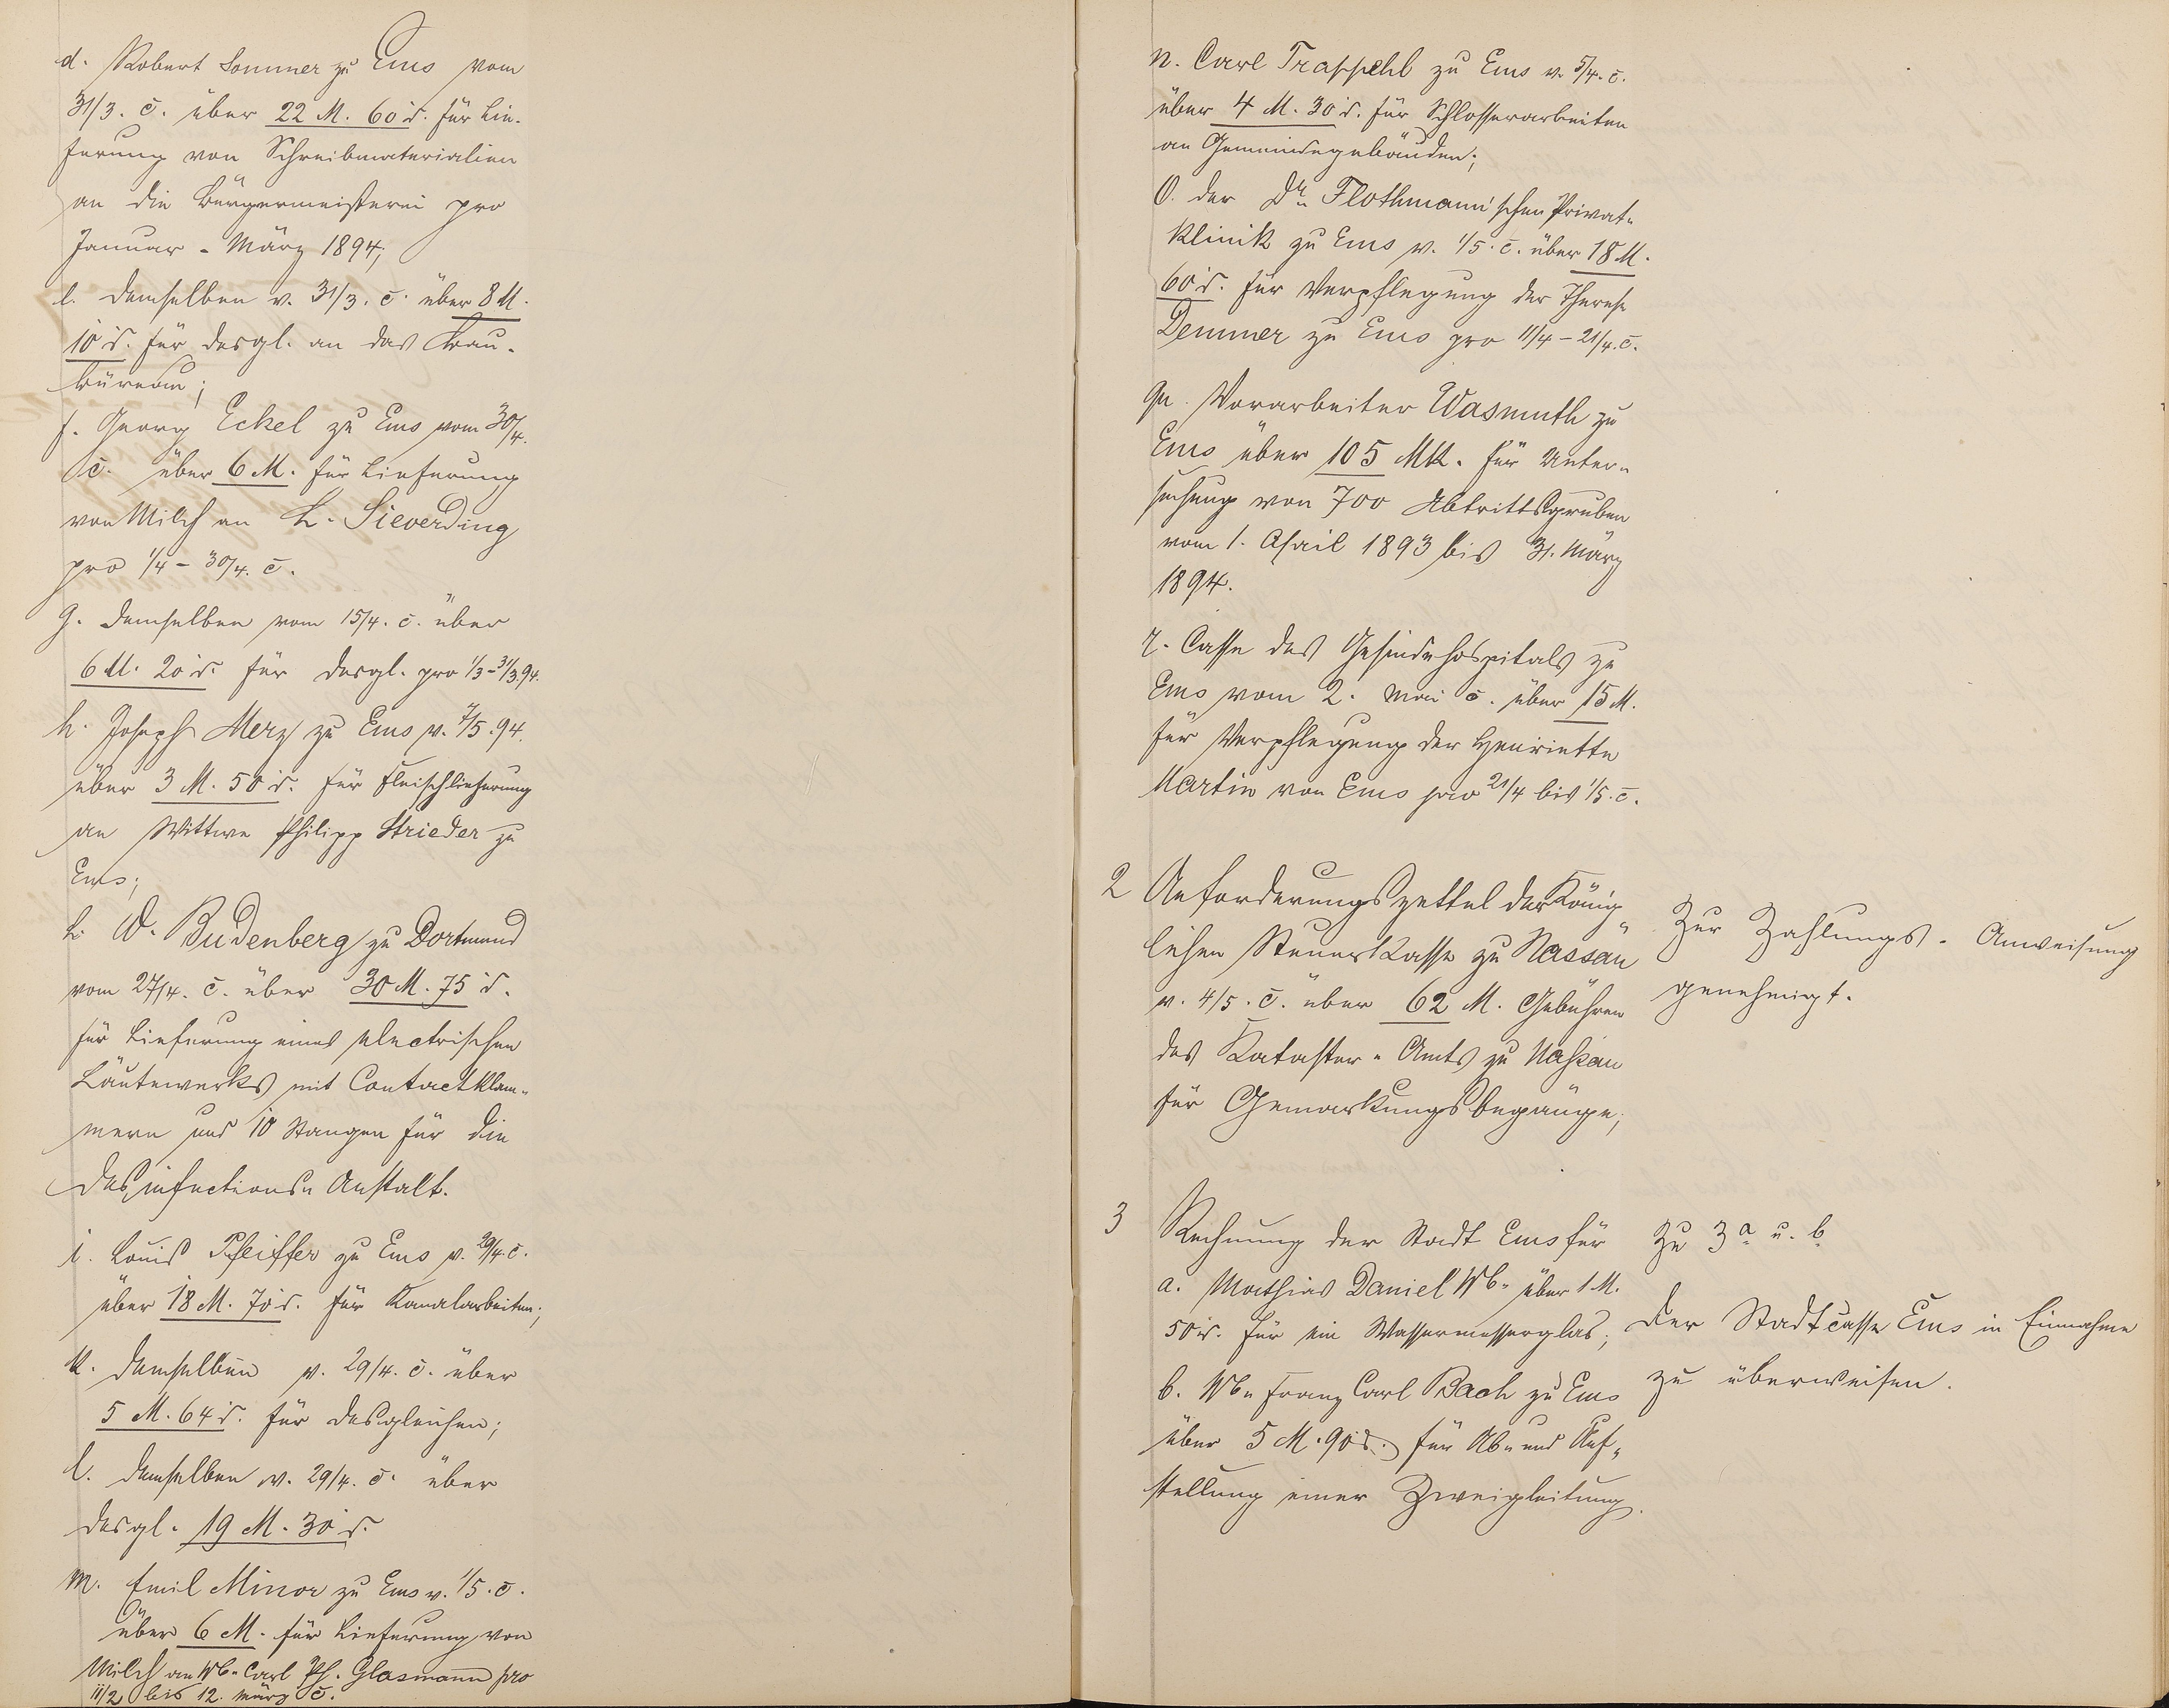 d. Robert Sommer zu Ems vom
31/3. c̄. über 22 M. 60 d. für Lie-
ferung von Schreibmaterialien
an die Bürgermeisterei pro
Januar - März 1894;
e. demselben v. 31/3. c̄. über 8 M.
10 d. für desgl. an das Bau-
büreau;
f. Georg Eckel zu Ems vom 30/4.
c̄. über 6 M. für Lieferung
von Milch an L. Sieverding
pro 1/4 - 30/4. c̄.
g. demselben vom 15/4. c̄. über
6 M. 20 d. für desgl. pro 1/3 - 31/3.94.
h. Joseph Merz zu Ems v. 7/5.94.
über 3 M. 50 d. für Fleischlieferung
an Wittwe Philipp Strieder zu
Ems;
h. W. Budenberg zu Dortmund
vom 27/4. c̄. über 30 M. 75 d.
für Lieferung eines electrischen
Läutewerks mit Contactklam-
mern und 10 Stangen für die
Desinfections-Anstalt.
i. Louis Pfeiffer zu Ems v. 29/4. c̄.
über 18 M. 70 d. für Kanalarbeiten;
k. demselben v. 29/4. c̄. über
5 M. 64 d. für desgleichen;
l. demselben v. 29/4. c̄. über
desgl. 19 M. 30 d.
m. Emil Minor zu Ems v. 1/5. c̄.
über 6 M. für Lieferung von
Milch an Wb. Carl Ph. Glasmann pro
11/2 bis 12. März c̄.
n. Carl Trappehl zu Ems v. 5/4. c̄.
über 4 M. 30 d. für Schlosserarbeiten
an Gemeindegebäuden;
o. der Dr. Flothmann'schen Privat-
klinik zu Ems v. 1/5. c̄. über 18 M.
60 d. für Verpflegung der Therese
Demmer zu Ems pro 11/4 - 21/4. c̄.
qu. Vorarbeiter Wasmuth zu
Ems über 105 Mk. für Unter-
suchung von 700 Abtrittsgruben
vom 1. April 1893 bis 31. März
1894.
r. Casse des Gesindehospitals zu
Ems vom 2. Mai c̄. über 15 M.
für Verpflegung der Henriette
Martin von Ems pro 21/4 bis 1/5. c̄.
2 Anforderungszettel der König-
lichen Steuerkasse zu Nassau
v. 4/5. c̄. über 62 M. Gebühren
des Kataster-Amts zu Nassau
für Gemarkungsbegänge;
Zur Zahlungs-Anweisung
genehmigt.
3 Rechnung der Stadt Ems für
a. Mathias Daniel Wb. über 1 M.
50 d. für ein Wassermesserglas;
b. Wb. Franz Carl Bach zu Ems
über 5 M. 90 d. für Ab- und Auf-
stellung einer Zweigleitung.
Zu 3 a u. b
der Stadtcasse Ems in Einnahme
zu überweisen.